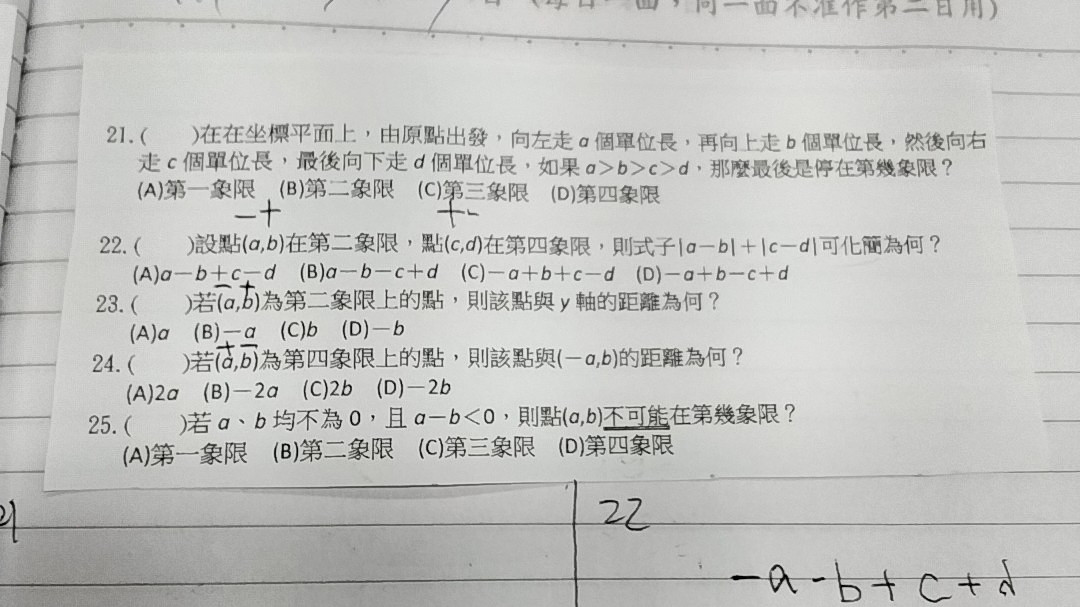 面，同一面不准作第二日用)
21.(　)在在坐標平面上，由原點出發，向左走 a 個單位長，再向上走 b 個單位長，然後向右
走 c 個單位長，最後向下走 d 個單位長，如果 a>b>c>d，那麼最後是停在第幾象限？
(A)第一象限 (B)第二象限 (C)第三象限 (D)第四象限
−+ +-
22.(　)設點(a,b)在第二象限，點(c,d)在第四象限，則式子|a−b|+|c−d|可化簡為何？
(A)a−b+c−d (B)a−b−c+d (C)−a+b+c−d (D)−a+b−c+d
− +
23.(　)若(a,b)為第二象限上的點，則該點與 y 軸的距離為何？
(A)a (B)−a (C)b (D)−b
+ −
24.(　)若(a,b)為第四象限上的點，則該點與(−a,b)的距離為何？
(A)2a (B)−2a (C)2b (D)−2b
25.(　)若 a、b 均不為 0，且 a−b<0，則點(a,b)不可能在第幾象限？
(A)第一象限 (B)第二象限 (C)第三象限 (D)第四象限
21 22
-a-b+c+d